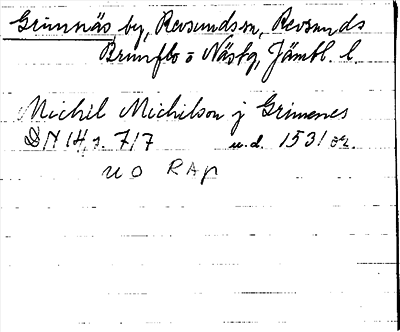 Grimnäs by, Revsundssn, Revsunds
Brunflo o Näskg, Jämtl. l
Michil Michilson j Grimenes
DN 14, s. 717 u.d. 1531 or.
u o RAp